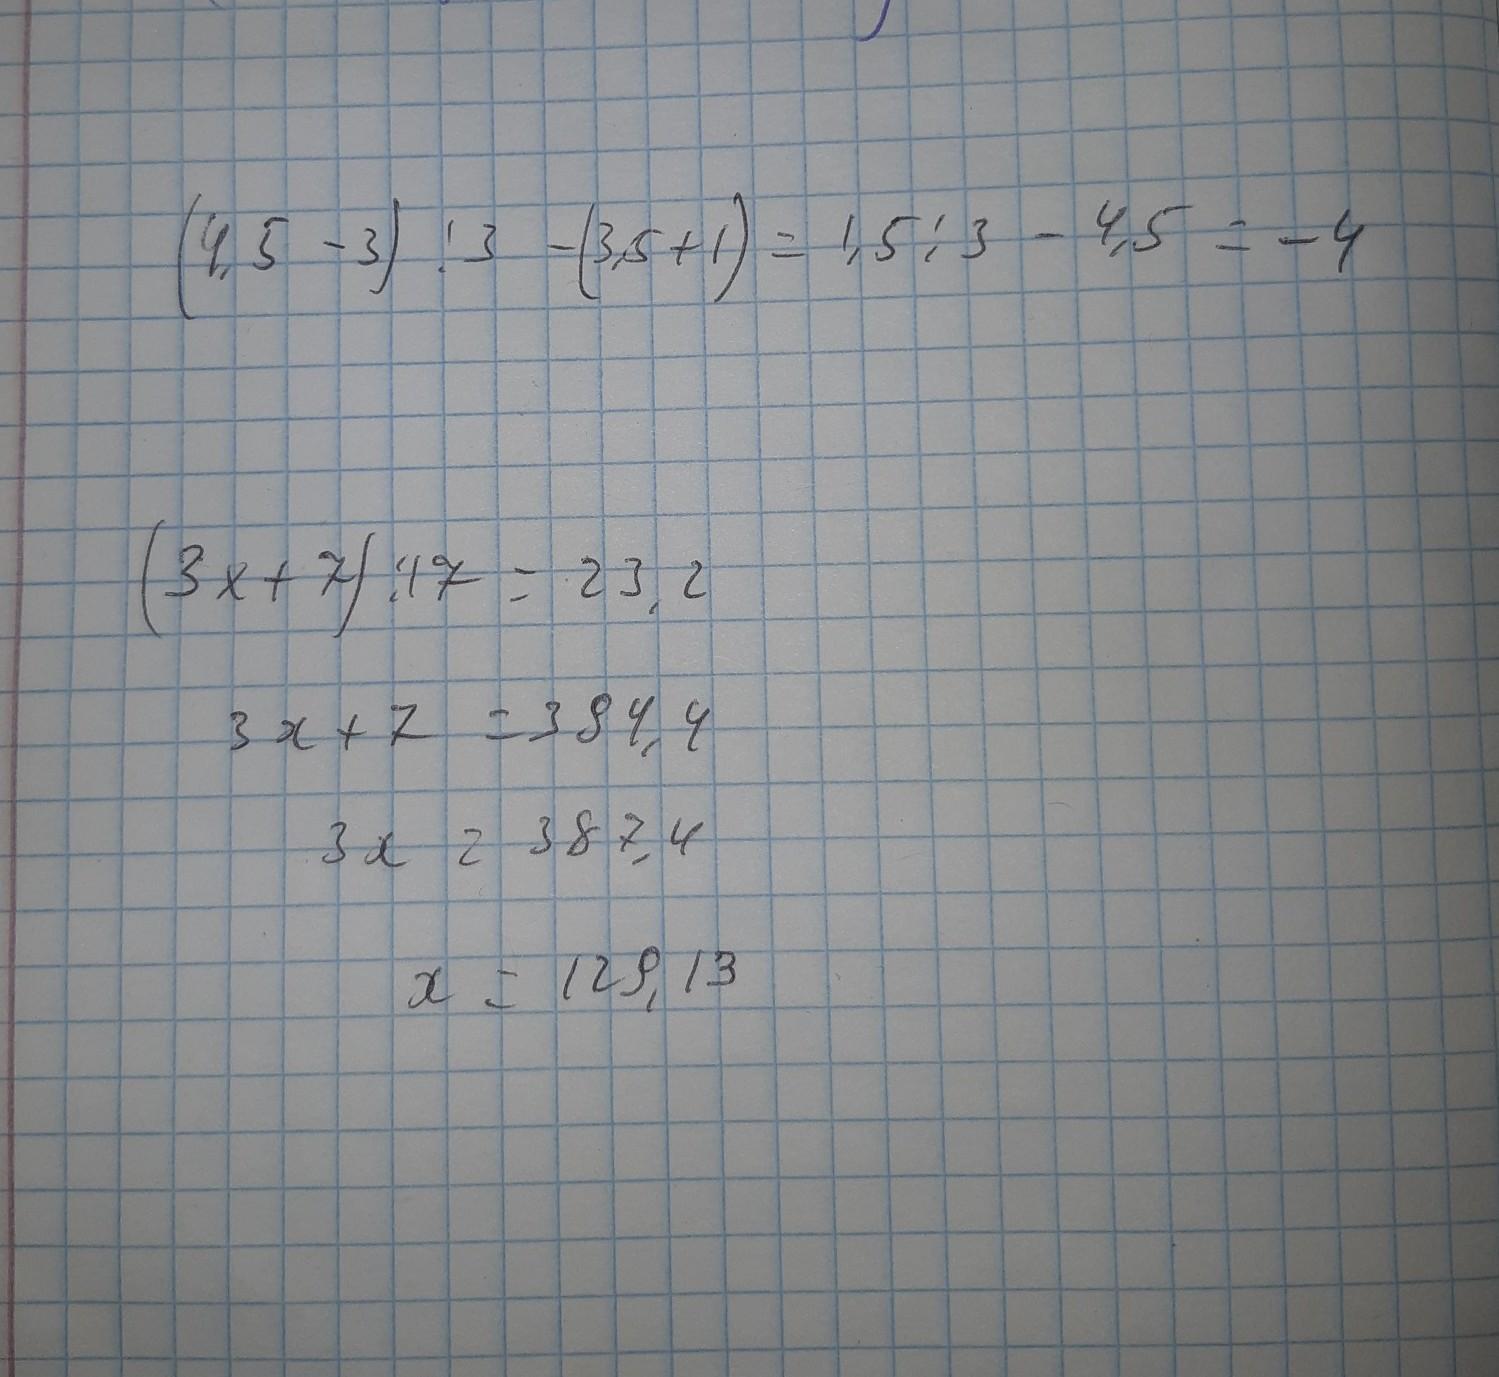 (4,5 - 3) : 3 - (3,5 + 1) = 1,5 : 3 - 4,5 = - 4
(3x + 7) : 17 = 23,2
3x + 7 = 394,4
3x = 387,4
x = 129,13